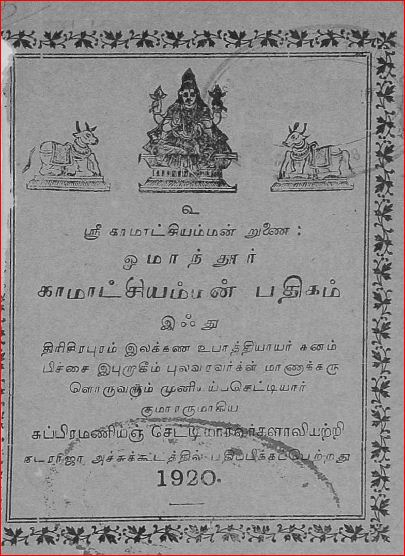 உ
ஸ்ரீ காமாட்சியம்மன் றுணை :
ஓமாந்தூர்
காமாட்சியம்மன் பதிகம்
இஃது
திரிசிரபுரம் இலக்கண உபாத்தியாயர் கனம்
பிச்சை இபுறாகீம் புலவரவர்கள் மாணாக்கரு
ளொருவரும் முனியப்பசெட்டியார்
குமாரருமாகிய
சுப்பிரமணியஞ் செட்டியாரவர்களாலியற்றி
நடராஜா அச்சுக்கூடத்தில் பதிப்பிக்கப்பெற்றது
1920.